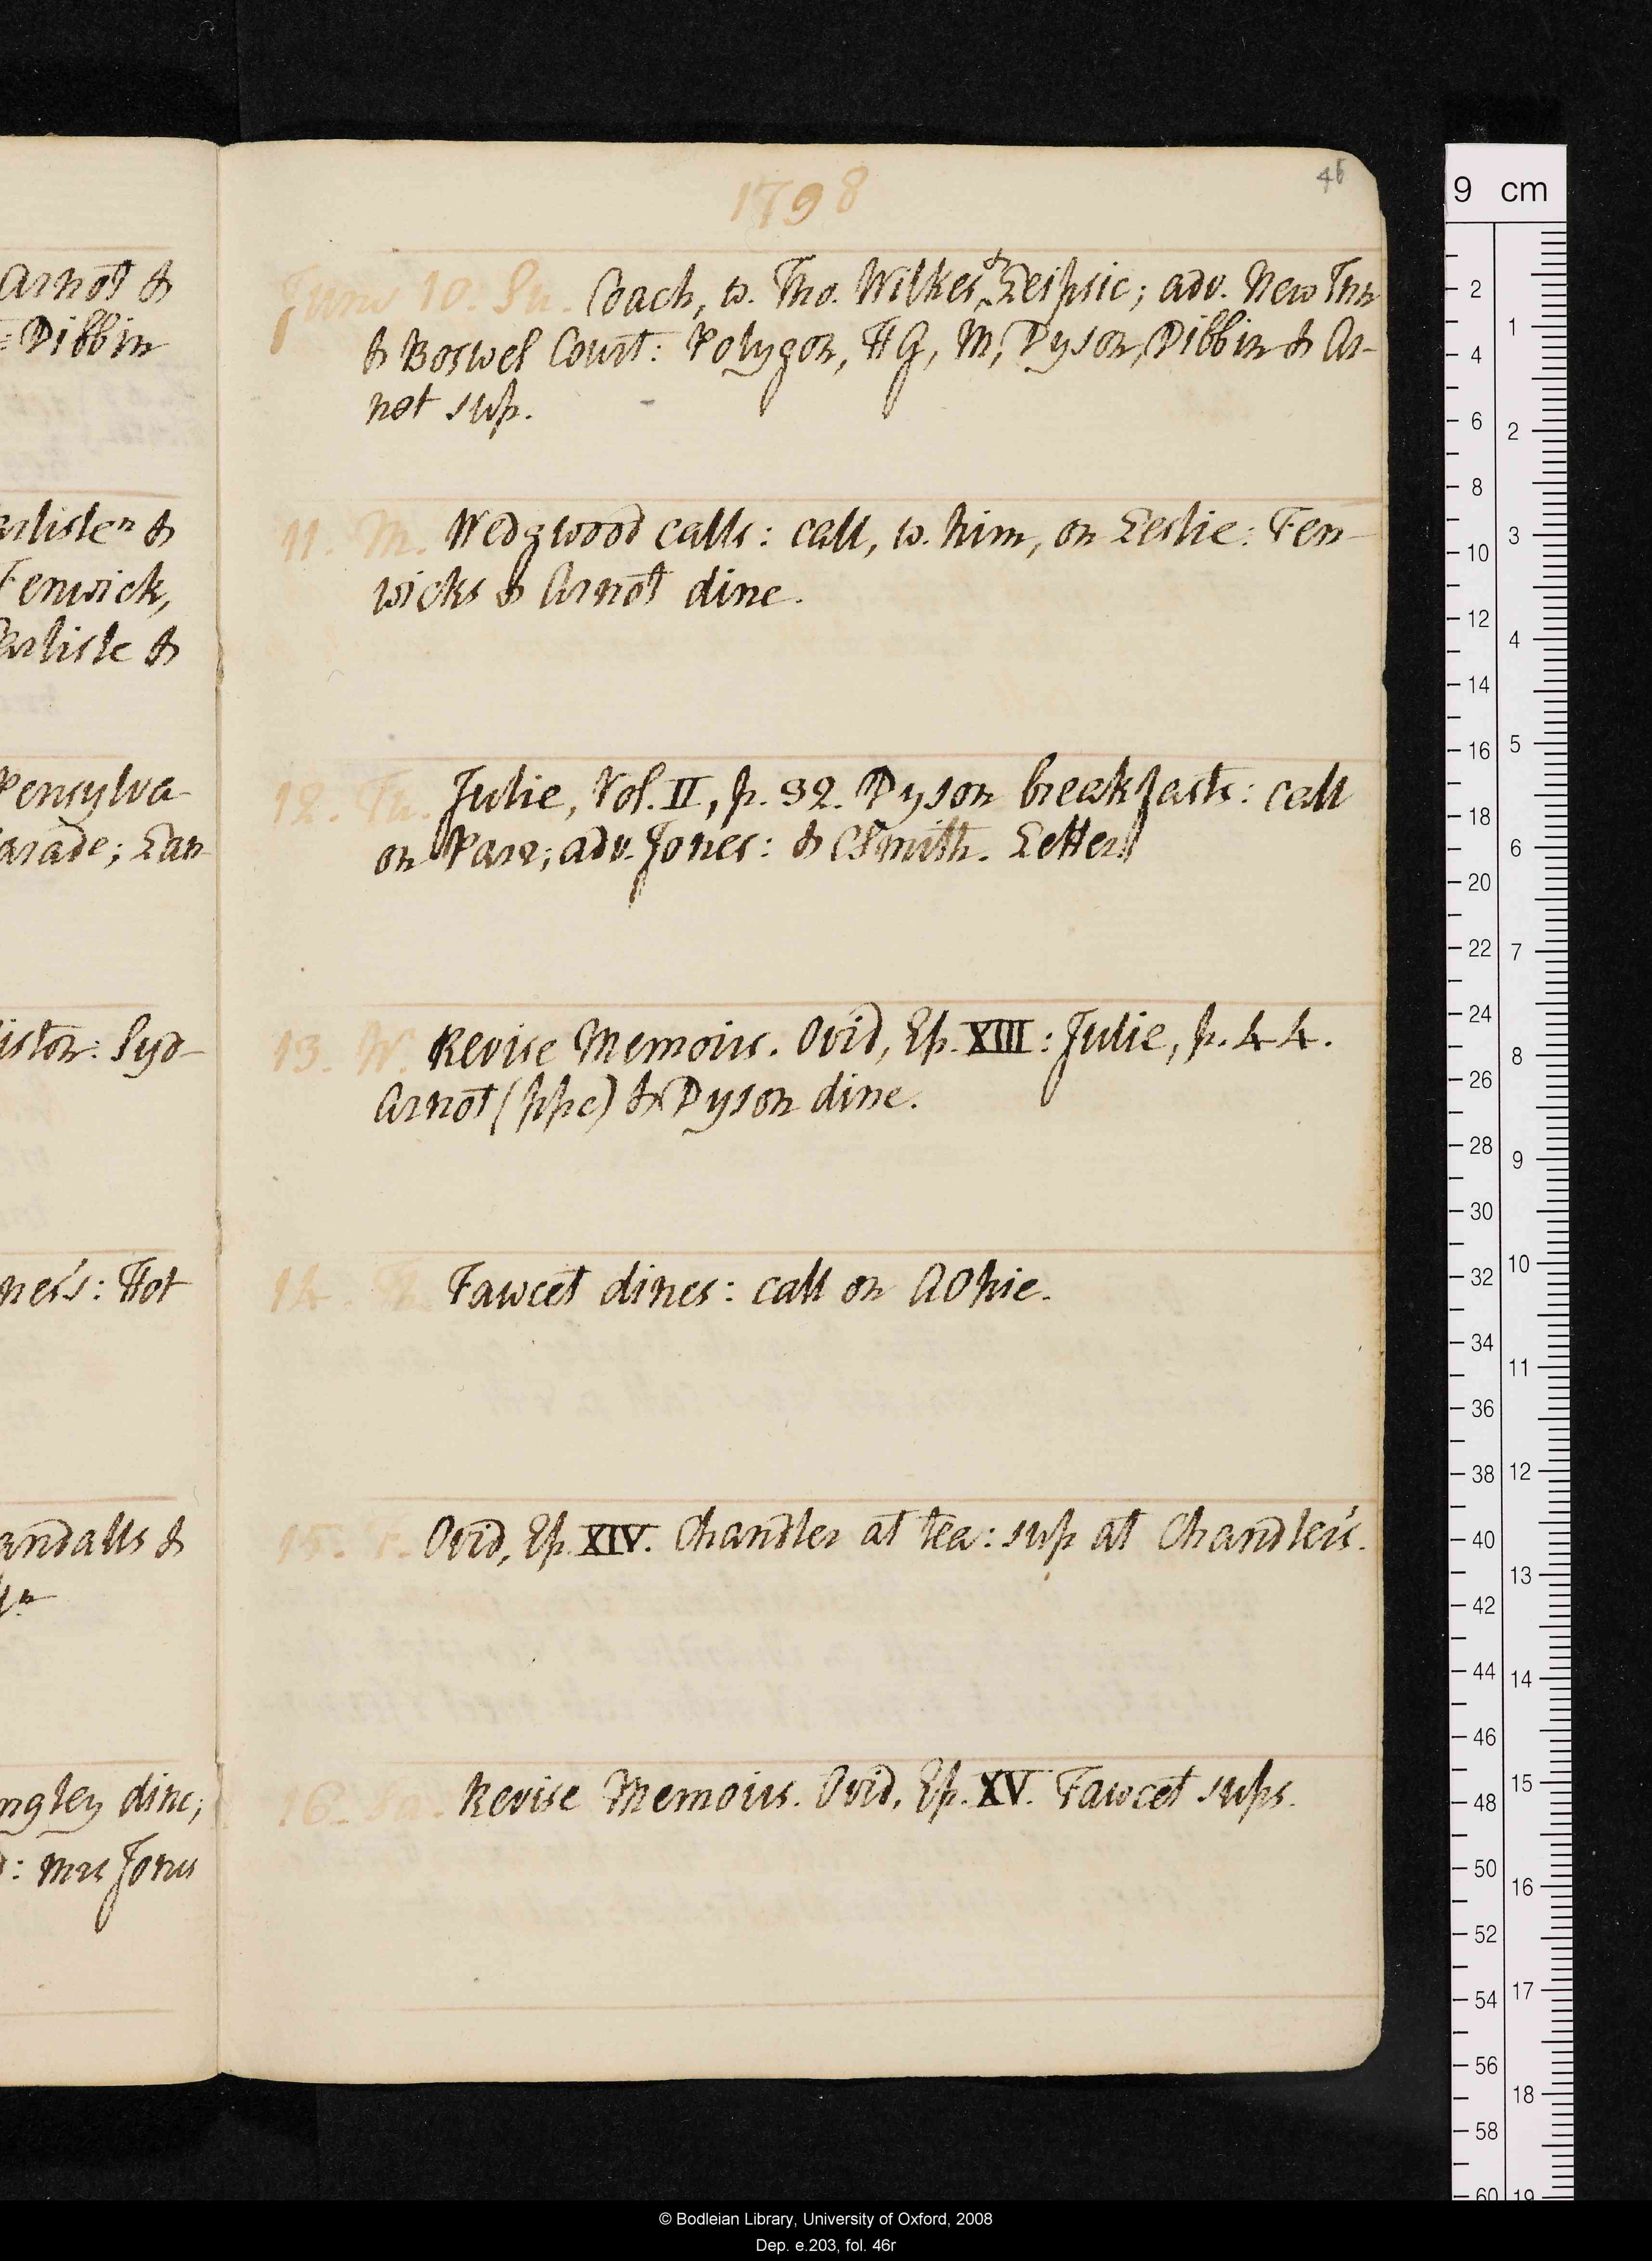 Arnot &
Dibbin
arlisle n &
Fenwick,
Carlisle &
Pensylva-
arade; Lan-
iston: Syd-
ner's: Hot
andalls &
ngley dine;
: mrs Jones
1798
46
June 10. Su. Coach, w. Tho. Wilkes, & Leipsic; adv. New Inn
& Boswel Court: Polygon, HG, M, Dyson, Dibbin & Ar-
not sup.
11. M. Wedgwood calls: call, w. him, on Leslie: Fen-
wicks & Arnot dine.
12. Tu. Julie, Vol. II, p. 32. Dyson breakfasts: call
on Parr; adv. Jones: & CSmith. Letter
13. W. Revise Memoirs. Ovid, Ep. XIII: Julie, p. 44.
Arnot (ppc) & Dyson dine.
14. Th. Fawcet dines: call on AOpie.
15. F. Ovid, Ep. XIV. Chandler at tea: sup at Chandler's.
16. Sa. Revise Memoirs. Ovid, Ep. XV. Fawcet sups.
9 cm
2
4
6
8
10
12
14
16
18
20
22
24
26
28
30
32
34
36
38
40
42
44
46
48
50
52
54
56
58
60
1
2
3
4
5
6
7
8
9
10
11
12
13
14
15
16
17
18
19
© Bodleian Library, University of Oxford, 2008
Dep. e.203, fol. 46r